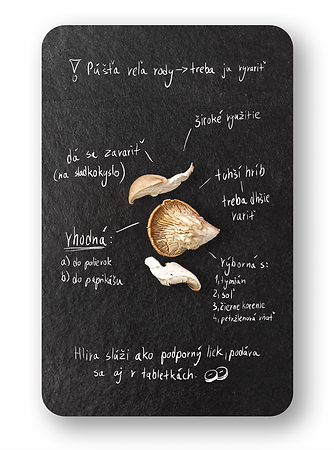 ! Púšťa veľa vody → treba ju vyvariť
široké využitie
dá sa zavariť
(na sladkokyslo)
tuhší hríb
treba dlhšie
variť
vhodná:
a) do polievok
b) do paprikášu
výborná s:
1, tymián
2, soľ
3, čierne korenie
4, petržlenová vňať
Hliva slúži ako podporný liek, podáva
sa aj v tabletkách.